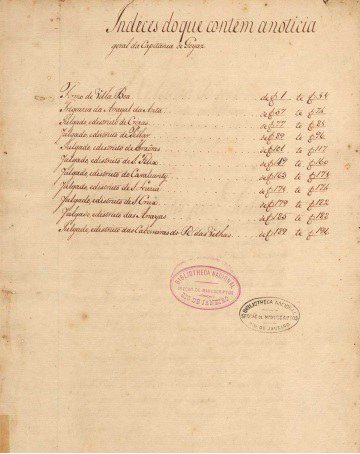 Indices do que contém a noticia
geral da Capitania de Goyaz
Termo de Villa Boa de f. 1 te f. 54
Freguezia do Arrayal da Anta de f. 57 te f. 75
Julgado, e destricto de Crixas de f. 77 te f. 85
Julgado, e destricto de Pillar de f. 89 te f. 96
Julgado, e destricto de Trahiras de f. 101 te f. 117
Julgado, e destricto de S. Felix de f. 119 te f. 160
Julgado, e destricto da Cavalcanty de f. 163 te f. 173
Julgado, e destricto de f. 173 te f. 176
Julgado, e destricto de S. Cruz de f. 179 te f. 182
Julgado, e destricto das Arrayas de f. 185 te f. 186
Julgado, e destricto das Cabeceiras do R. das Velhas de f. 189 te f. 196
BIBLIOTHECA NACIONAL
SECÇÃO DE MANUSCRIPTOS
RIO DE JANEIRO
BIBLIOTHECA NACIONAL
SECÇÃO DE MANUSCRIPTOS
RIO DE JANEIRO